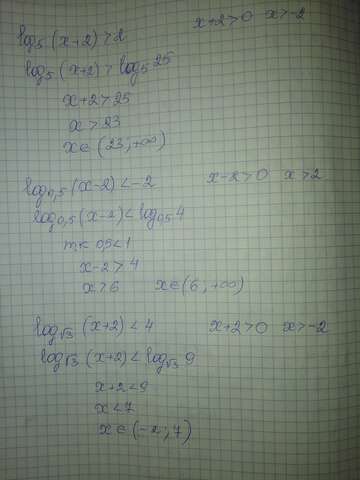 log₅ (x+2) > 2 x+2>0 x>-2
log₅ (x+2) > log₅ 25
x+2 > 25
x > 23
x ∈ (23; +∞)
log₀,₅ (x-2) < -2 x-2>0 x>2
log₀,₅ (x-2) < log₀,₅ 4
т.к 0,5<1
x-2 > 4
x > 6 x∈(6; +∞)
log√3 (x+2) < 4 x+2>0 x>-2
log√3 (x+2) < log√3 9
x+2 < 9
x < 7
x ∈ (-2; 7)